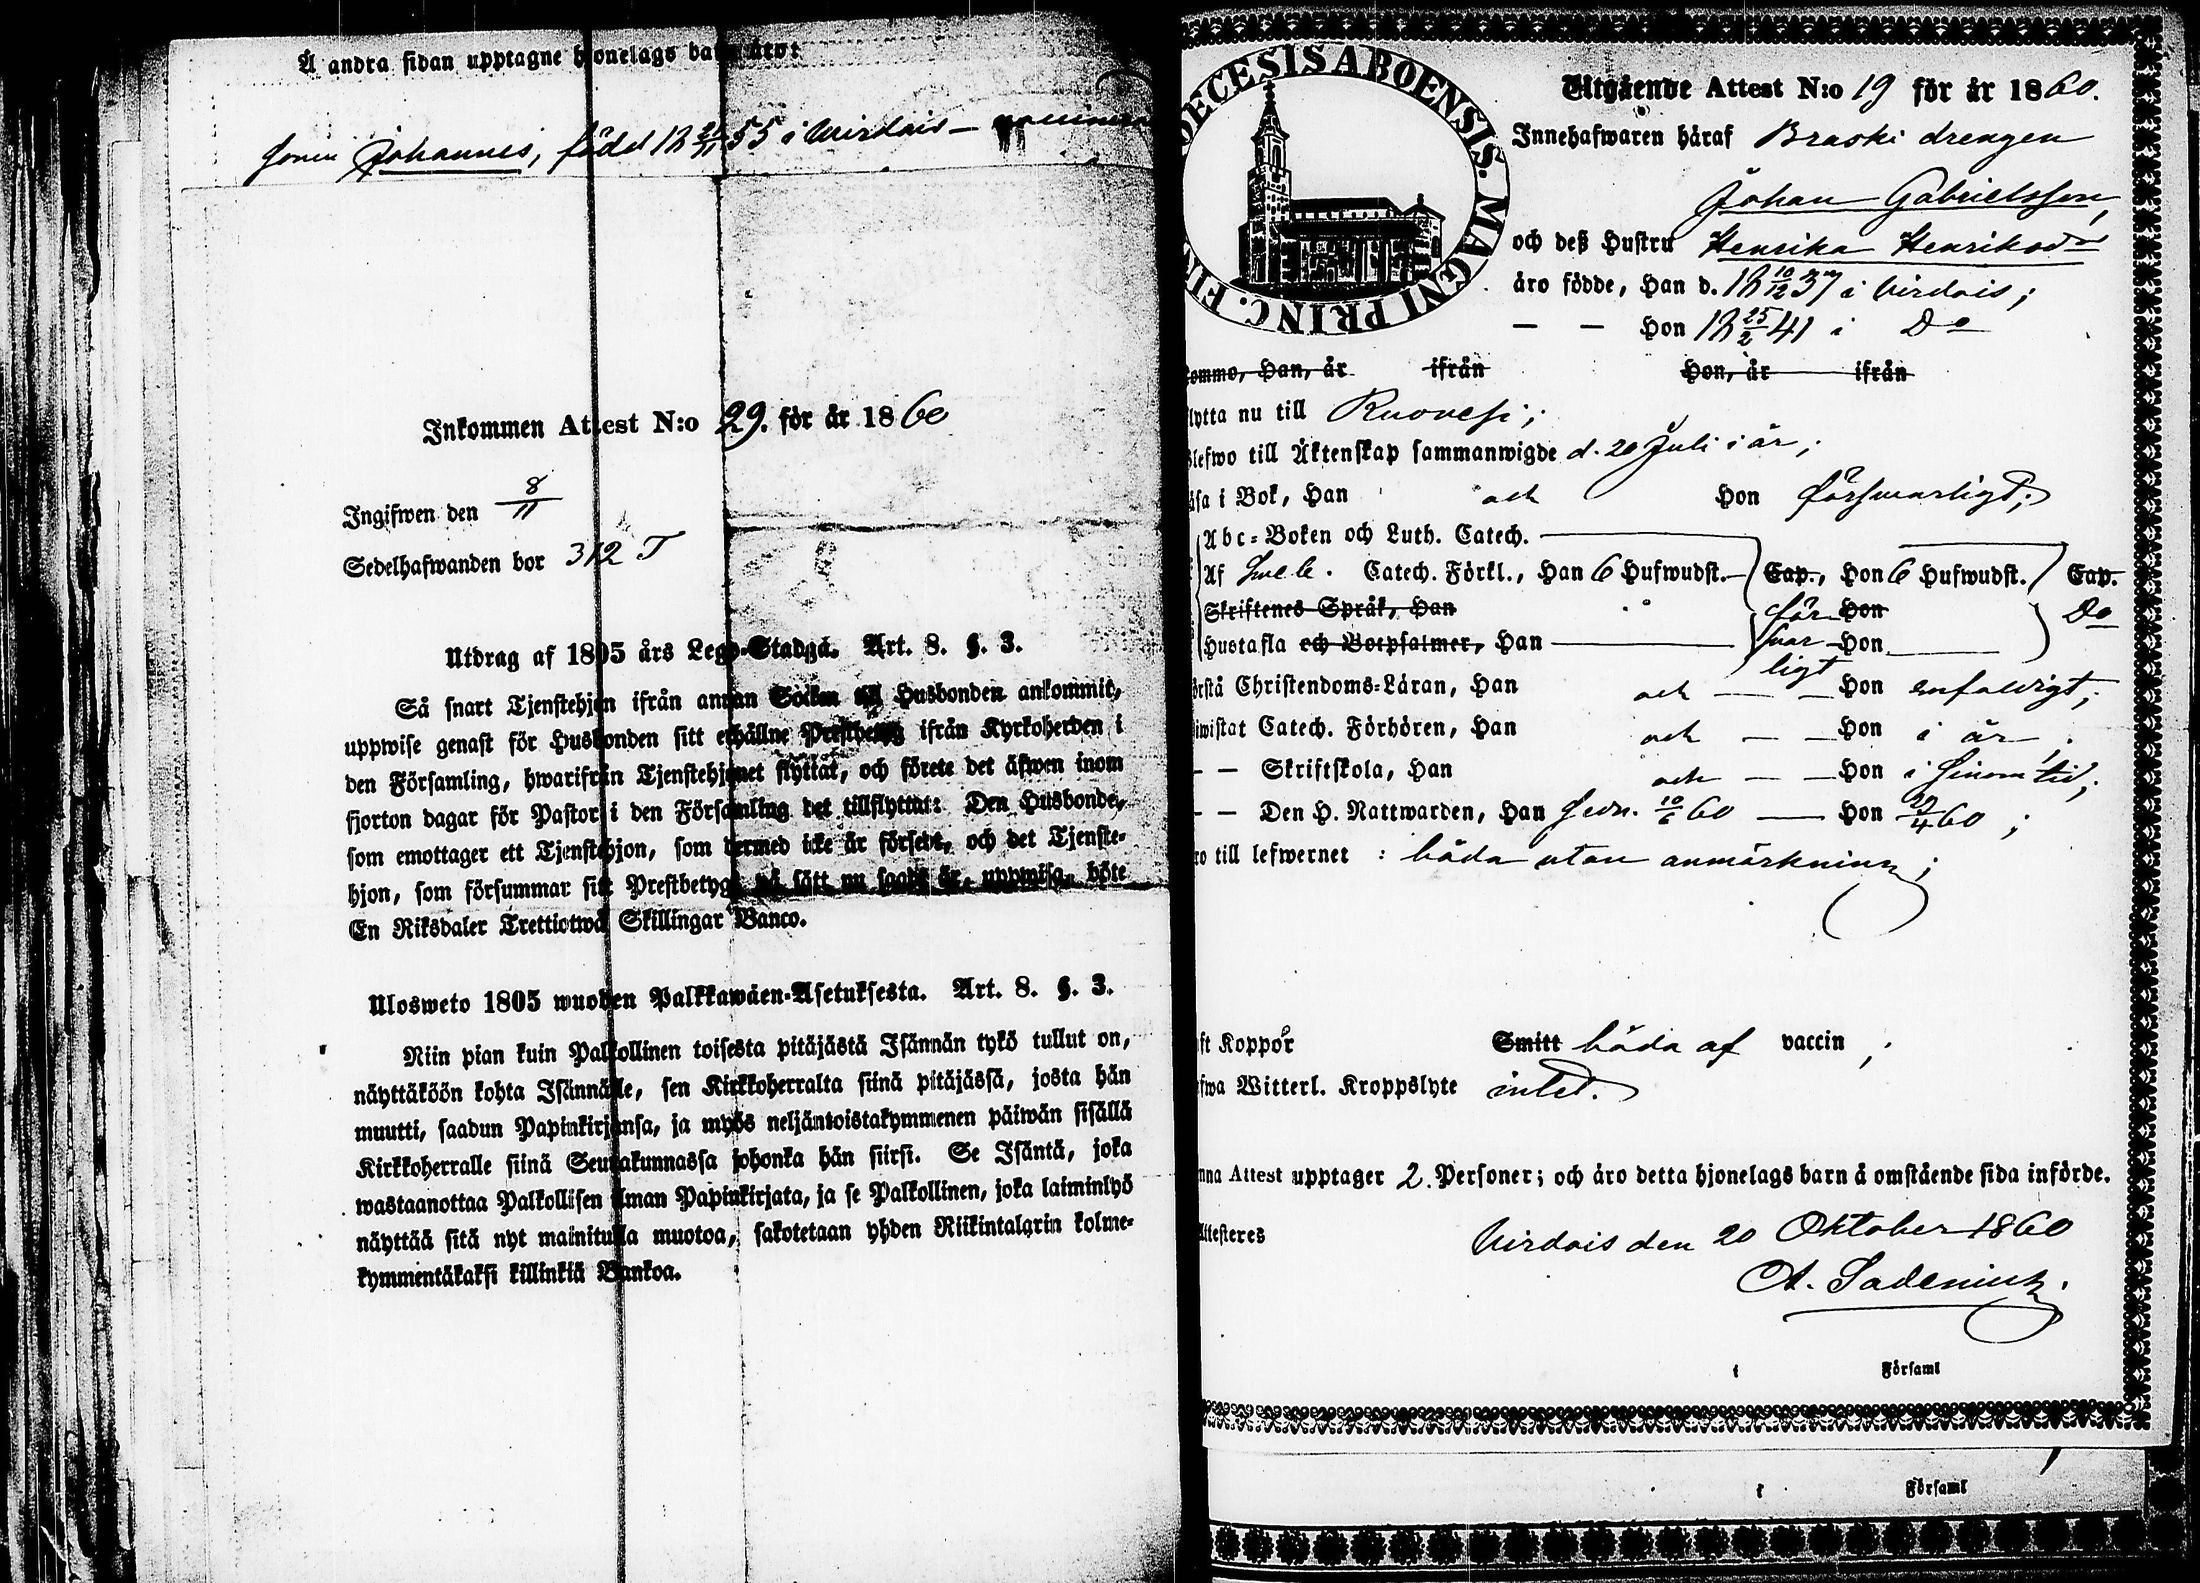 Å andra sidan upptagne hjonelags barn äro:
Sonen Johannes, född 18 21/11 55 i Wirdois —
Inkommen Attest N:o 29. för år 1860
Ingifwen den 8/11
Sedelhafwanden bor 312 T
Utdrag af 1805 års Lego-Stadga. Art. 8. §. 3.
Så snart Tjenstehjon ifrån annan Socken till Husbonden ankommit,
uppwise genast för Husbonden sitt erhållne Prestbetyg ifrån Kyrkoherden i
den Församling, hwarifrån Tjenstehjonet flyttat, och förete det äfwen inom
fjorton dagar för Pastor i den Församling det tillflyttat: Den Husbonde,
som emottager ett Tjenstehjon, som dermed icke är försedt, och det Tjenste-
hjon, som försummar sitt Prestbetyg på sätt nu sagdt är, uppwisa, böte
En Riksdaler Trettiotwå Skillingar Banco.
Ulosweto 1805 wuoden Palkkawäen-Asetuksesta. Art. 8. §. 3.
Niin pian kuin Palkollinen toisesta pitäjästä Isännän tykö tullut on,
näyttäköön kohta Isännälle, sen Kirkkoherralta siinä pitäjässä, josta hän
muutti, saadun Papinkirjansa, ja myös neljäntoistakymmenen päiwän sisällä
Kirkkoherralle siinä Seurakunnassa johonka hän siirsi. Se Isäntä, joka
wastaanottaa Palkollisen ilman Papinkirjata, ja se Palkollinen, joka laiminlyö
näyttää sitä nyt mainitulla muotoa, sakotetaan yhden Riikintalarin kolme-
kymmentäkaksi killinkiä Bankoa.
DECESIS ABOENSIS. MAGNI PRINC. FIN
Utgående Attest N:o 19 för år 1860.
Innehafwaren häraf Braski drengen
Johan Gabrielsson,
och deß Hustru Henrika Henriksdr
äro födde, Han d. 18 10/12 37 i Virdois;
— — Hon 18 25/2 41 i Do
ommo, Han, år ifrån Hon, år ifrån
lytta nu till Ruovesi;
lefwo till Äktenskap sammanwigde d. 20 Juli i år;
äsa i Bok, Han och Hon försvarligt;
Abc-Boken och Luth. Catech.
Af Sveb. Catech. Förkl., Han 6 Hufwudst. — Cap., Hon 6 Hufwudst. Cap.
Skriftenes Språk, Han för Hon Do
Hustafla och Botpsalmer, Han svar Hon
ligt
örstå Christendoms-Läran, Han och — — Hon enfaldigt;
iwistat Catech. Förhören, Han och — — Hon i år
— — Skriftskola, Han och — — Hon i sinom tid;
— — Den H. Nattwarden, Han sedn. 10/6 60 — Hon 29/4 60;
ro till lefwernet : båda utan anmärkning;
ft Koppor Smitt båda af vaccin;
fwa Witterl. Kroppslyte intet.
nna Attest upptager 2. Personer; och äro detta hjonelags barn å omstående sida införde.
Attesteras
Virdois den 20 Oktober 1860
i Församl
i Församl